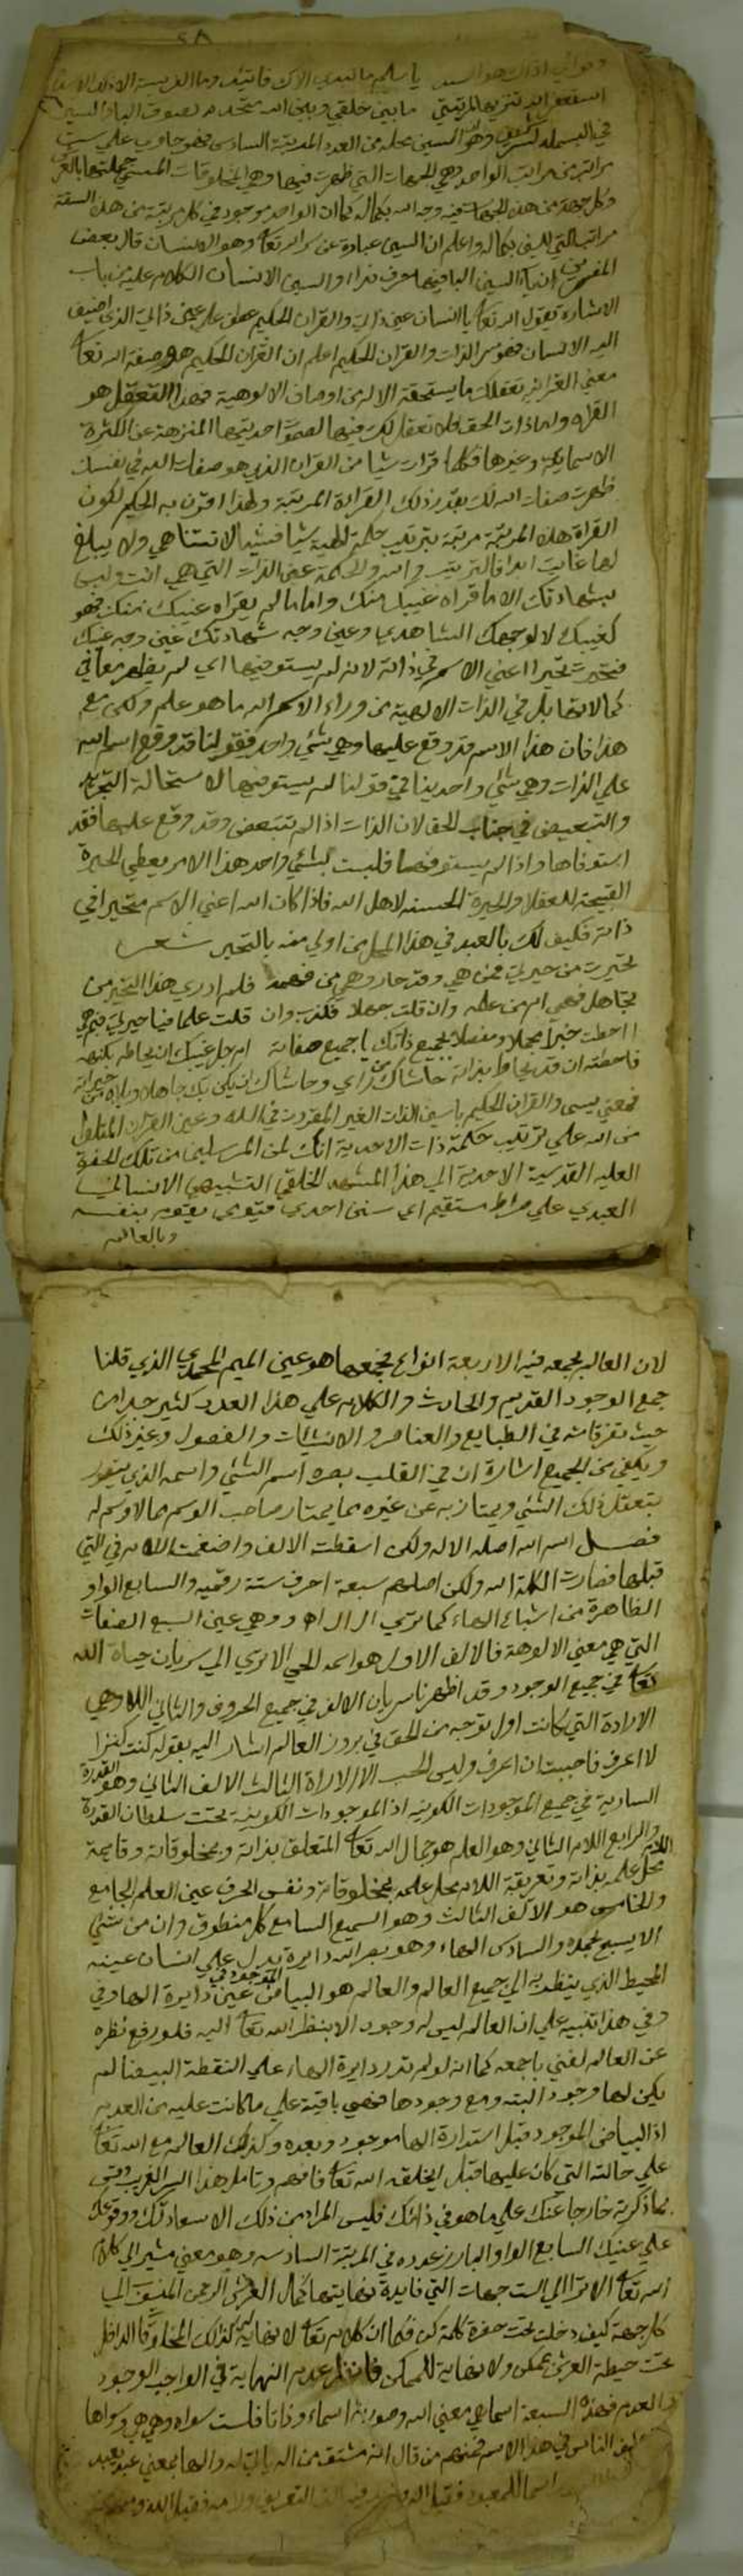 استغفر الله تنزيها لمرتبتي ما بيني خلقي وبين الله متحد
في البسملة الشريف وهو السين محله من العدد المرتبة السادس فهو حاوي على ست
مراتب من مراتب الواحد وهي الجهات التي ظهرت فيها وهي المخلوقات المسمى جملتها بالعرش
وكل جهة من هذه الجهات فيه وجه الله بكماله كما ان الواحد موجود في كل مرتبة من هذه الستة
مراتب التي للسين بكماله واعلم ان السين عبارة عن سر الله تعالى وهو الانسان قال بعض
المفسرين ان ياء السين الباقيها حرف ندا والسين الانسان الكلام عليه من باب
الاشارة تقول الله تعالى يا انسان عين ذاتي والقران الحكيم عطف على عين ذاتي الذي اضيف
اليه الانسان فهو سر الذات والقران الحكيم اعلم ان القران الحكيم هو صفة الله تعالى
معني القران تعقلك ما يستحقه الاله من اوصاف الالوهية فهذا التعقل هو
القراه واما ذات الحق فلا تعقل لك فيها لصمو احديتها المنزهة عن الكثرة
الاسمايية وغيرها فكلما قرات شيا من القران الذي هو صفات الله في نفسك
ظهرت صفات الله لك بقدر ذلك القراة المرتبة ولهذا اقترن به الحكيم لكون
القراة هذه المرتبة مرتبة بترتيب حكمة الهية شيا فشيا لا تتناهي ولا يبلغ
لها غايت ابدا فالترتيب في الله والحكمة عين الذات التي هي انت وليس
بشهادتك الا ما قراه غيبك منك واما ما لم يقراه عينك منك فهو
كغيبك لا لوجهك الشاهدي وعين وجه شهادتك عين وجه غيبك
فتحير تحيرا اعني الاسم في ذاته لانه لم يستوفيها اي لم يظهر معاني
كمالاتها بل في الذات الالهية من وراء الاسم الله ما هو علم ولكن مع
هذا فان هذا الاسم قد وقع عليها وهي شي واحد فقولنا قد وقع اسم الله
على الذات وهي شي واحد ينافي قولنا لم يستوفيها لاستحالة التجزيه
والتبعيض في جناب الحق لان الذات اذا لم تتبعض وقد وقع عليها فقد
استوفاها واذا لم يستوفها فليست بشي واحد هذا الامر يعطي الحيرة
القبيحة للعقلا والحيرة الحسنه لاهل الله فاذا كان الله اعني الاسم متحيرا في
ذاته فكيف لك بالعبد في هذا المحل من اولي منه بالتحير شعر
تحيرت من حيرتي من هي وقد حار وهمي من فهمه فلم ادري هذا التحير من
تجاهل فهمي ام من علمه وان قلت جهلا فكذب وان قلت علما فيا حيرتي فيم هي
ااحطت خبرا مجملا ومفصلا بجميع ذاتك يا جميع صفاته ام جل غيبك ان يحاط بكنهه
فاحطته ان قد يحاط بذاته حاشاك من راي وحاشاك ان يكن بك جاهلا
فمعني يسى والقران الحكيم يا سين الذات الغير المقيدة في الله وعين القران المتلو
من الله على ترتيب حكمة ذات الاحدية انك لمن المرسلين من تلك الحضرة
العليه القدسية الاحدية الي هذا المشهد الخلقي التشبيهي الانساني
العبدي على صراط مستقيم اي سنن احدي قيومي يقوم بنفسه
وبالعالم
لان العالم يجمعه فيه الاربعة انواع فجمعها هو عين الميم المحمدي الذي قلنا
جمع الوجود القديم والحادث والكلام علي هذا العدد كثير جدا من
حيث تفرقاته في الطبايع والعناصر والانشيات والفصول وغير ذلك
ويكفي من الجميع اشارة ان في القلب بصره اسم الشي واسمه الذي
بتعقل ذلك الشي ويمتاز به عن غيره بما يمتاز صاحب الوسم بما لا وسم له
فصل اسم الله اصله الاله ولكن اسقطت الالف وادغمت اللام في التي
قبلها فصارت الكلمة الله ولكن اصلهم سبعة احرف ستة رقمية والسابع الواو
الظاهرة من اشباع الهاء كما تري ال ال اه و وهي عين السبع الصفات
التي هي معني الالوهة فالالف الاول هو اسمه الحي الاتري الي سريان حياة الله
تعالى في جميع الوجود وقد اظهرنا سريان الالف في جميع الحروف والثاني اللام وهي
الارادة التي كانت اول توجه من الحق في بروز العالم اشار اليه بقوله كنت كنزا
لا اعرف فاحببت ان اعرف وليس الحب الا الارادة الثالث الالف الثاني وهو القدرة
السارية في جميع الموجودات الكونيه اذ الموجودات الكونية تحت سلطان القدرة
والرابع اللام الثاني وهو العلم هو جمال الله تعالى المتعلق بذاته وبمخلوقاته وقايمة
اللام محل علمه بذاته وتعريقة اللام محل علمه بمخلوقاته ونفس الحرف عين العلم الجامع
والخامس هو الالف الثالث وهو السميع السامع كل منطوق وان من شي
الا يسبح بحمده والسادس الهاء وهو بصر الله دايرة يدل علي انسان عينه
المحيط الذي ينظر به الي جميع العالم والعالم هو البياض الموجود في عين دايرة الها وفي
وفي هذا تنبيه علي ان العالم ليس له وجود الا بنظر الله تعالى اليه فلو رفع نظره
عن العالم لفني باجمعه كما انه لو لم تدر دايرة الهاء علي النقطة البيضا لم
يكن لها وجود البته ومع وجودها فهي باقية علي ما كانت عليه من العدم
اذ البياض الموجود قبل استدارة الها موجود وبعده وكذلك العالم مع الله تعالى
علي حالته التي كان عليها قبل ان يخلقه الله تعالى فافهم وتامل هذا السر الغريب وقس
بما ذكرته خارجا عنك علي ما هو في ذاتك فليس المراد من ذلك الا سعادتك ووقوعك
علي عينك السابع الواو البارز عدده في المرتبة السادسة وهو معني مشير الي كلام
الله تعالى الا ترا الي الست جهات التي فايدة نهايتها كمال العرش الرحمن المنسوب الي
كل جهة كيف دخلت تحت حضرة كلمة كن فكما ان كلام تعالى لا نهاية له كذلك المخلوق الداخل
تحت حيطة العرش ممكن ولا نهاية للممكن فانظر عدم النهاية في الواجب الوجود
والعدم فهذه السبعة اسما هي معني الله وصورته اسماء وذاتا فلست سواه وهي هي وسواها
الناس في هذا الاسم فمنهم من قال انه مشتق من اله ياله والها بمعني عبد يعبد